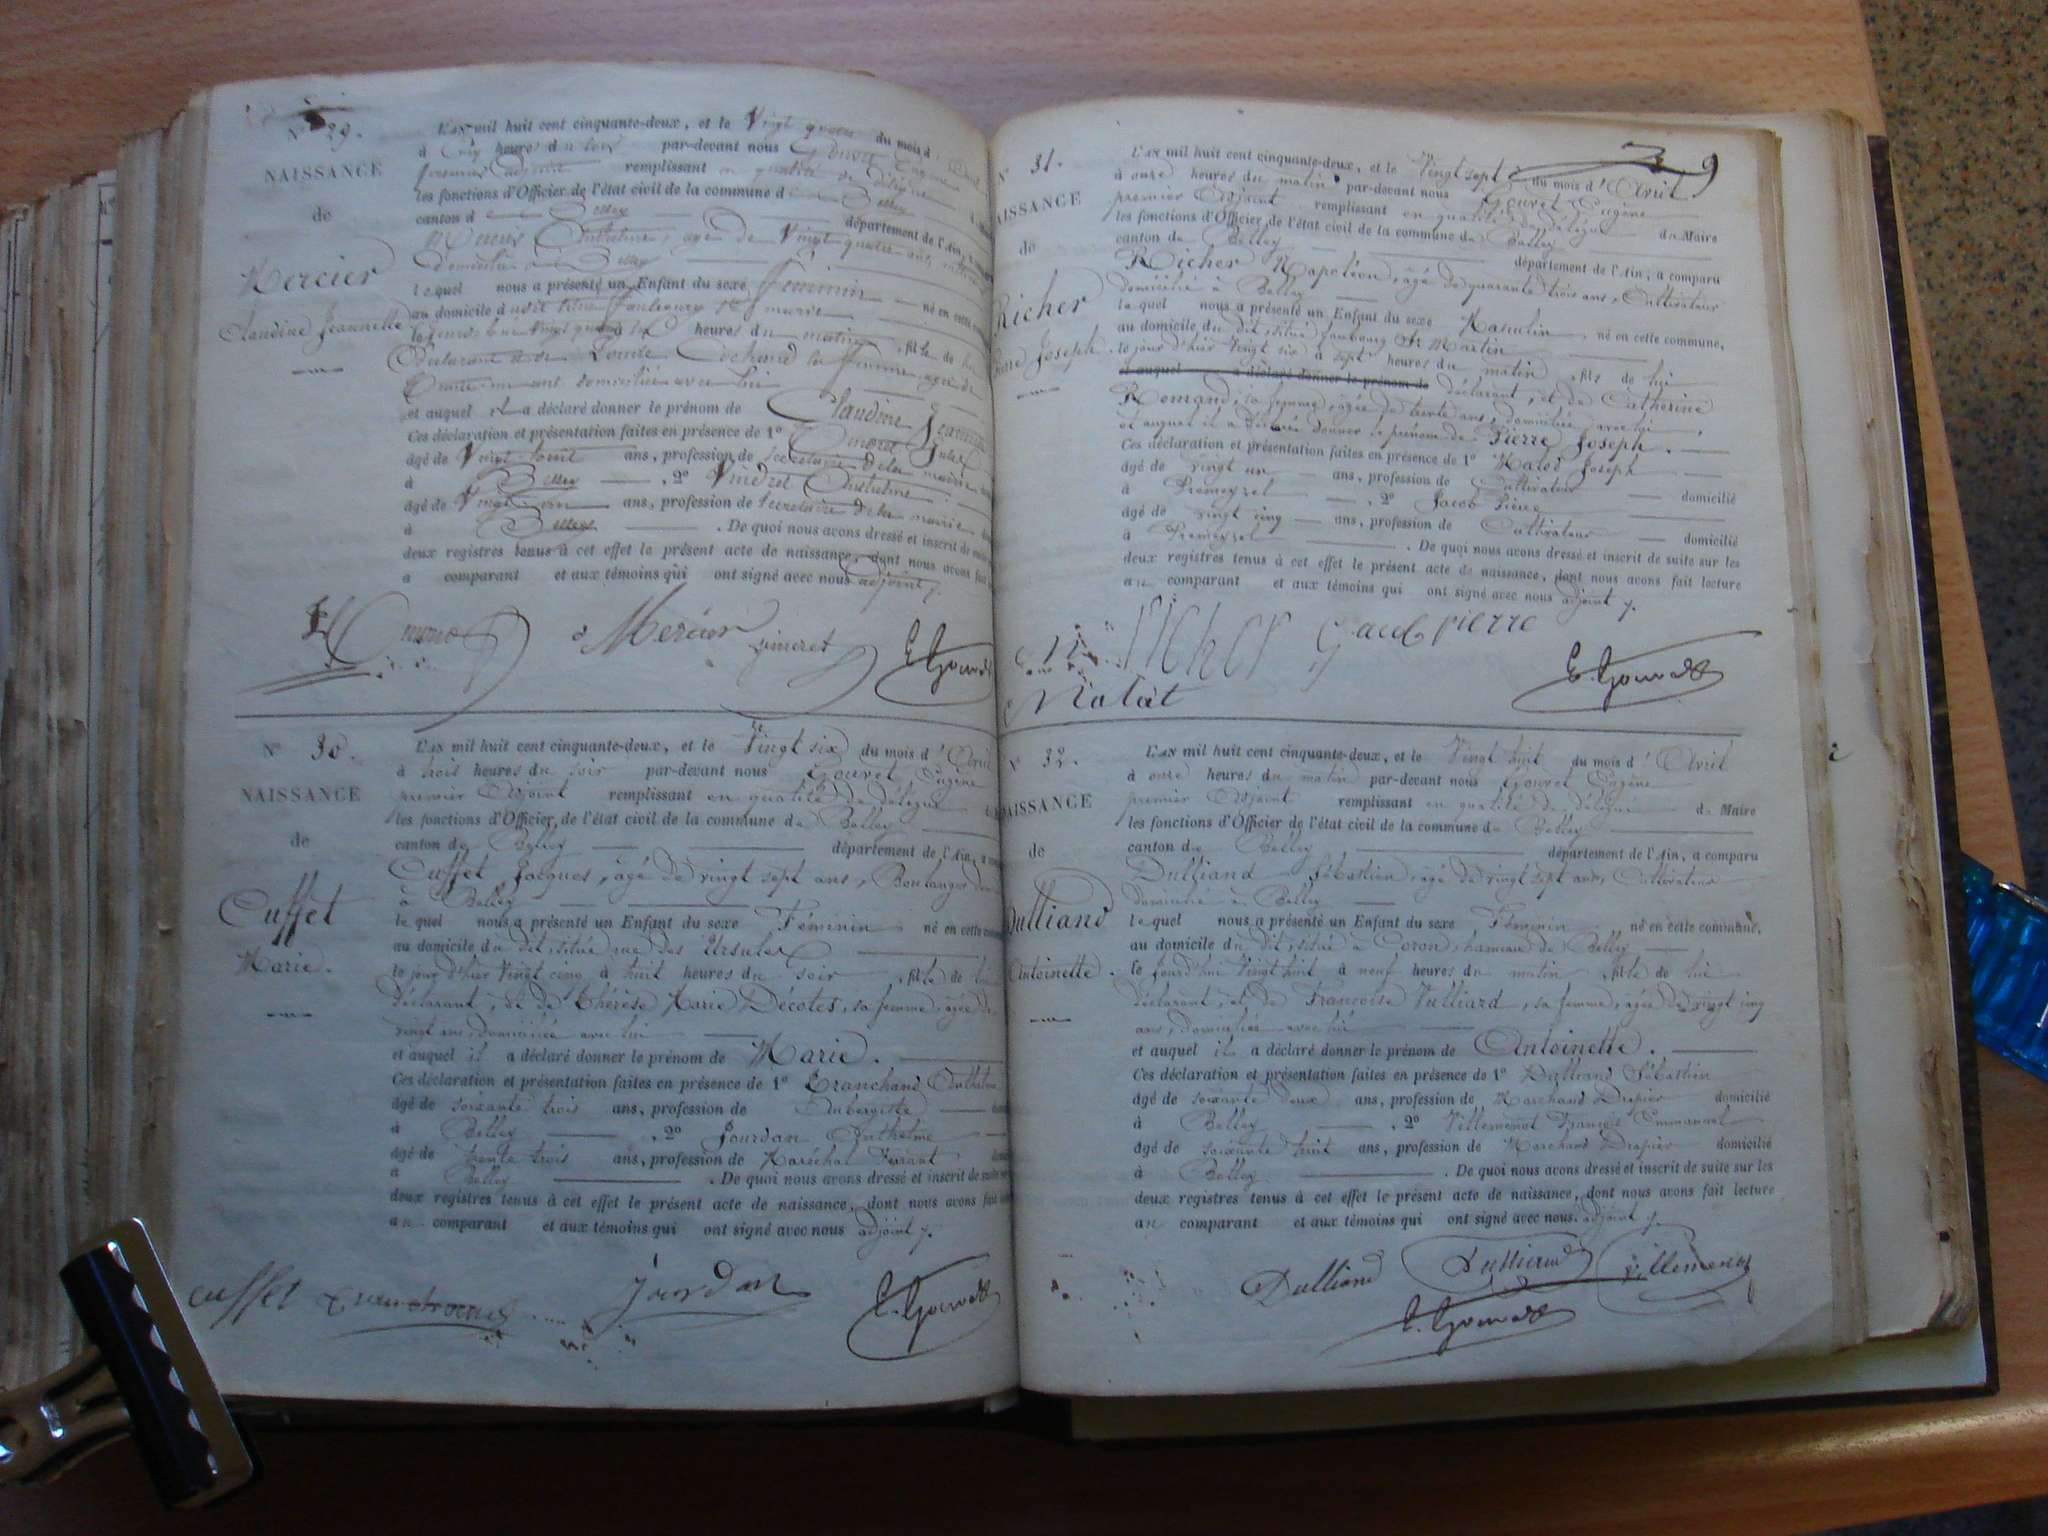 N° 29.
NAISSANCE
de
Mercier
Claudine Jeannette
L'AN mil huit cent cinquante-deux, et le Vingt quatre du mois d'
à Cinq heures du soir par-devant nous Gouvet Eugène
premier adjoint remplissant en qualité de délégué
les fonctions d'Officier de l'état civil de la commune d Belley
canton d Belley département de l'Ain,
Mercier Anthelme, agé de Vingt quatre ans,
domicilié à Belley
lequel nous a présenté un Enfant du sexe féminin né en cette
au domicile dudit situé faubourg St martin
heures du matin, fille de lui
Déclarant et de Louise Cochand sa femme agée de
domiciliée avec lui
et auquel il a déclaré donner le prénom de Claudine Jeannette
Ces déclaration et présentation faites en présence de 1° Gimeret Jules
âgé de Vingt huit ans, profession de secrétaire de la mairie
à Belley, 2° Vindret Anthelme
âgé de Vingt ans, profession de secrétaire de la mairie
à Belley. De quoi nous avons dressé et inscrit de
deux registres tenus à cet effet le présent acte de naissance, dont nous avons fait
a comparant et aux témoins qui ont signé avec nous adjoint
Mercier gimeret E. Gouvet
N° 30.
NAISSANCE
de
Cuffet
Marie.
L'AN mil huit cent cinquante-deux, et le Vingt six du mois d'Avril
à trois heures du soir par-devant nous Gouvet Eugène
premier Adjoint remplissant en qualité de délégué
les fonctions d'Officier de l'état civil de la commune de Belley
canton de Belley département de l'Ain, a
Cuffet Jacques, âgé de vingt sept ans, Boulanger
à Belley
lequel nous a présenté un Enfant du sexe Féminin né en cette
au domicile du dit, situé rue des Ursules
le jour d'hier Vingt cinq à huit heures du soir, fille de lui
déclarant, et de Thérèse Marie Décotes, sa femme, âgée de
vingt ans, domiciliée avec lui
et auquel il a déclaré donner le prénom de Marie.
Ces déclaration et présentation faites en présence de 1° Tranchand Anthelme
âgé de soixante trois ans, profession de Aubergiste
à Belley, 2° Jourdan Anthelme
âgé de trente trois ans, profession de Maréchal Ferrant,
à Belley. De quoi nous avons dressé et inscrit de suite
deux registres tenus à cet effet le présent acte de naissance, dont nous avons fait
au comparant et aux témoins qui ont signé avec nous adjoint
cuffet Tranchand Jourdan E. Gouvet
9
N° 31.
NAISSANCE
de
Richer
Pierre Joseph.
L'AN mil huit cent cinquante-deux, et le Vingt sept du mois d'Avril
à onze heures du matin par-devant nous Gouvet Eugène
premier Adjoint remplissant en qualité de délégué de Maire
les fonctions d'Officier de l'état civil de la commune de Belley
canton de Belley département de l'Ain, a comparu
Richer Napoléon, âgé de quarante trois ans, Cultivateur
domicilié à Belley
lequel nous a présenté un Enfant du sexe Masculin, né en cette commune,
au domicile du dit, situé faubourg St Martin
le jour d'hier Vingt six à sept heures du matin, fils de lui
et auquel a déclaré donner le prénom de déclarant, et de Catherine
Romand, sa femme, âgée de trente ans, domiciliée avec lui,
et auquel il a déclaré donner le prénom de Pierre Joseph.
Ces déclaration et présentation faites en présence de 1° Malod Joseph
âgé de vingt un ans, profession de Cultivateur domicilié
à Prémeyzel, 2° Jacob Pierre
âgé de vingt cinq ans, profession de Cultivateur domicilié
à Prémeyzel. De quoi nous avons dressé et inscrit de suite sur les
deux registres tenus à cet effet le présent acte de naissance, dont nous avons fait lecture
au comparant et aux témoins qui ont signé avec nous adjoint
richer Jacob pierre
Malot E. Gouvet
N° 32.
NAISSANCE
de
Dulliand
Antoinette.
L'AN mil huit cent cinquante-deux, et le Vingt huit du mois d'Avril
à onze heures du matin par-devant nous Gouvet Eugène
premier Adjoint remplissant en qualité de délégué de Maire
les fonctions d'Officier de l'état civil de la commune de Belley
canton de Belley département de l'Ain, a comparu
Dulliand Sébastien, âgé de vingt sept ans, Cultivateur
domicilié à Belley
lequel nous a présenté un Enfant du sexe Féminin né en cette commune,
au domicile du dit, situé à Coron, hameau de Belley
le jourd'hui Vingt huit à neuf heures du matin, fille de lui
déclarant, et de Françoise Vulliard, sa femme, âgée de vingt cinq
ans, domiciliée avec lui
et auquel il a déclaré donner le prénom de Antoinette.
Ces déclaration et présentation faites en présence de 1° Dulliand Sébastien
âgé de soixante deux ans, profession de Marchand Drapier domicilié
à Belley, 2° Villemenot François Emmanuel
âgé de soixante huit ans, profession de Marchand Drapier domicilié
à Belley. De quoi nous avons dressé et inscrit de suite sur les
deux registres tenus à cet effet le présent acte de naissance, dont nous avons fait lecture
au comparant et aux témoins qui ont signé avec nous adjoint
Dulliand Dulliand villemenot
E. Gouvet